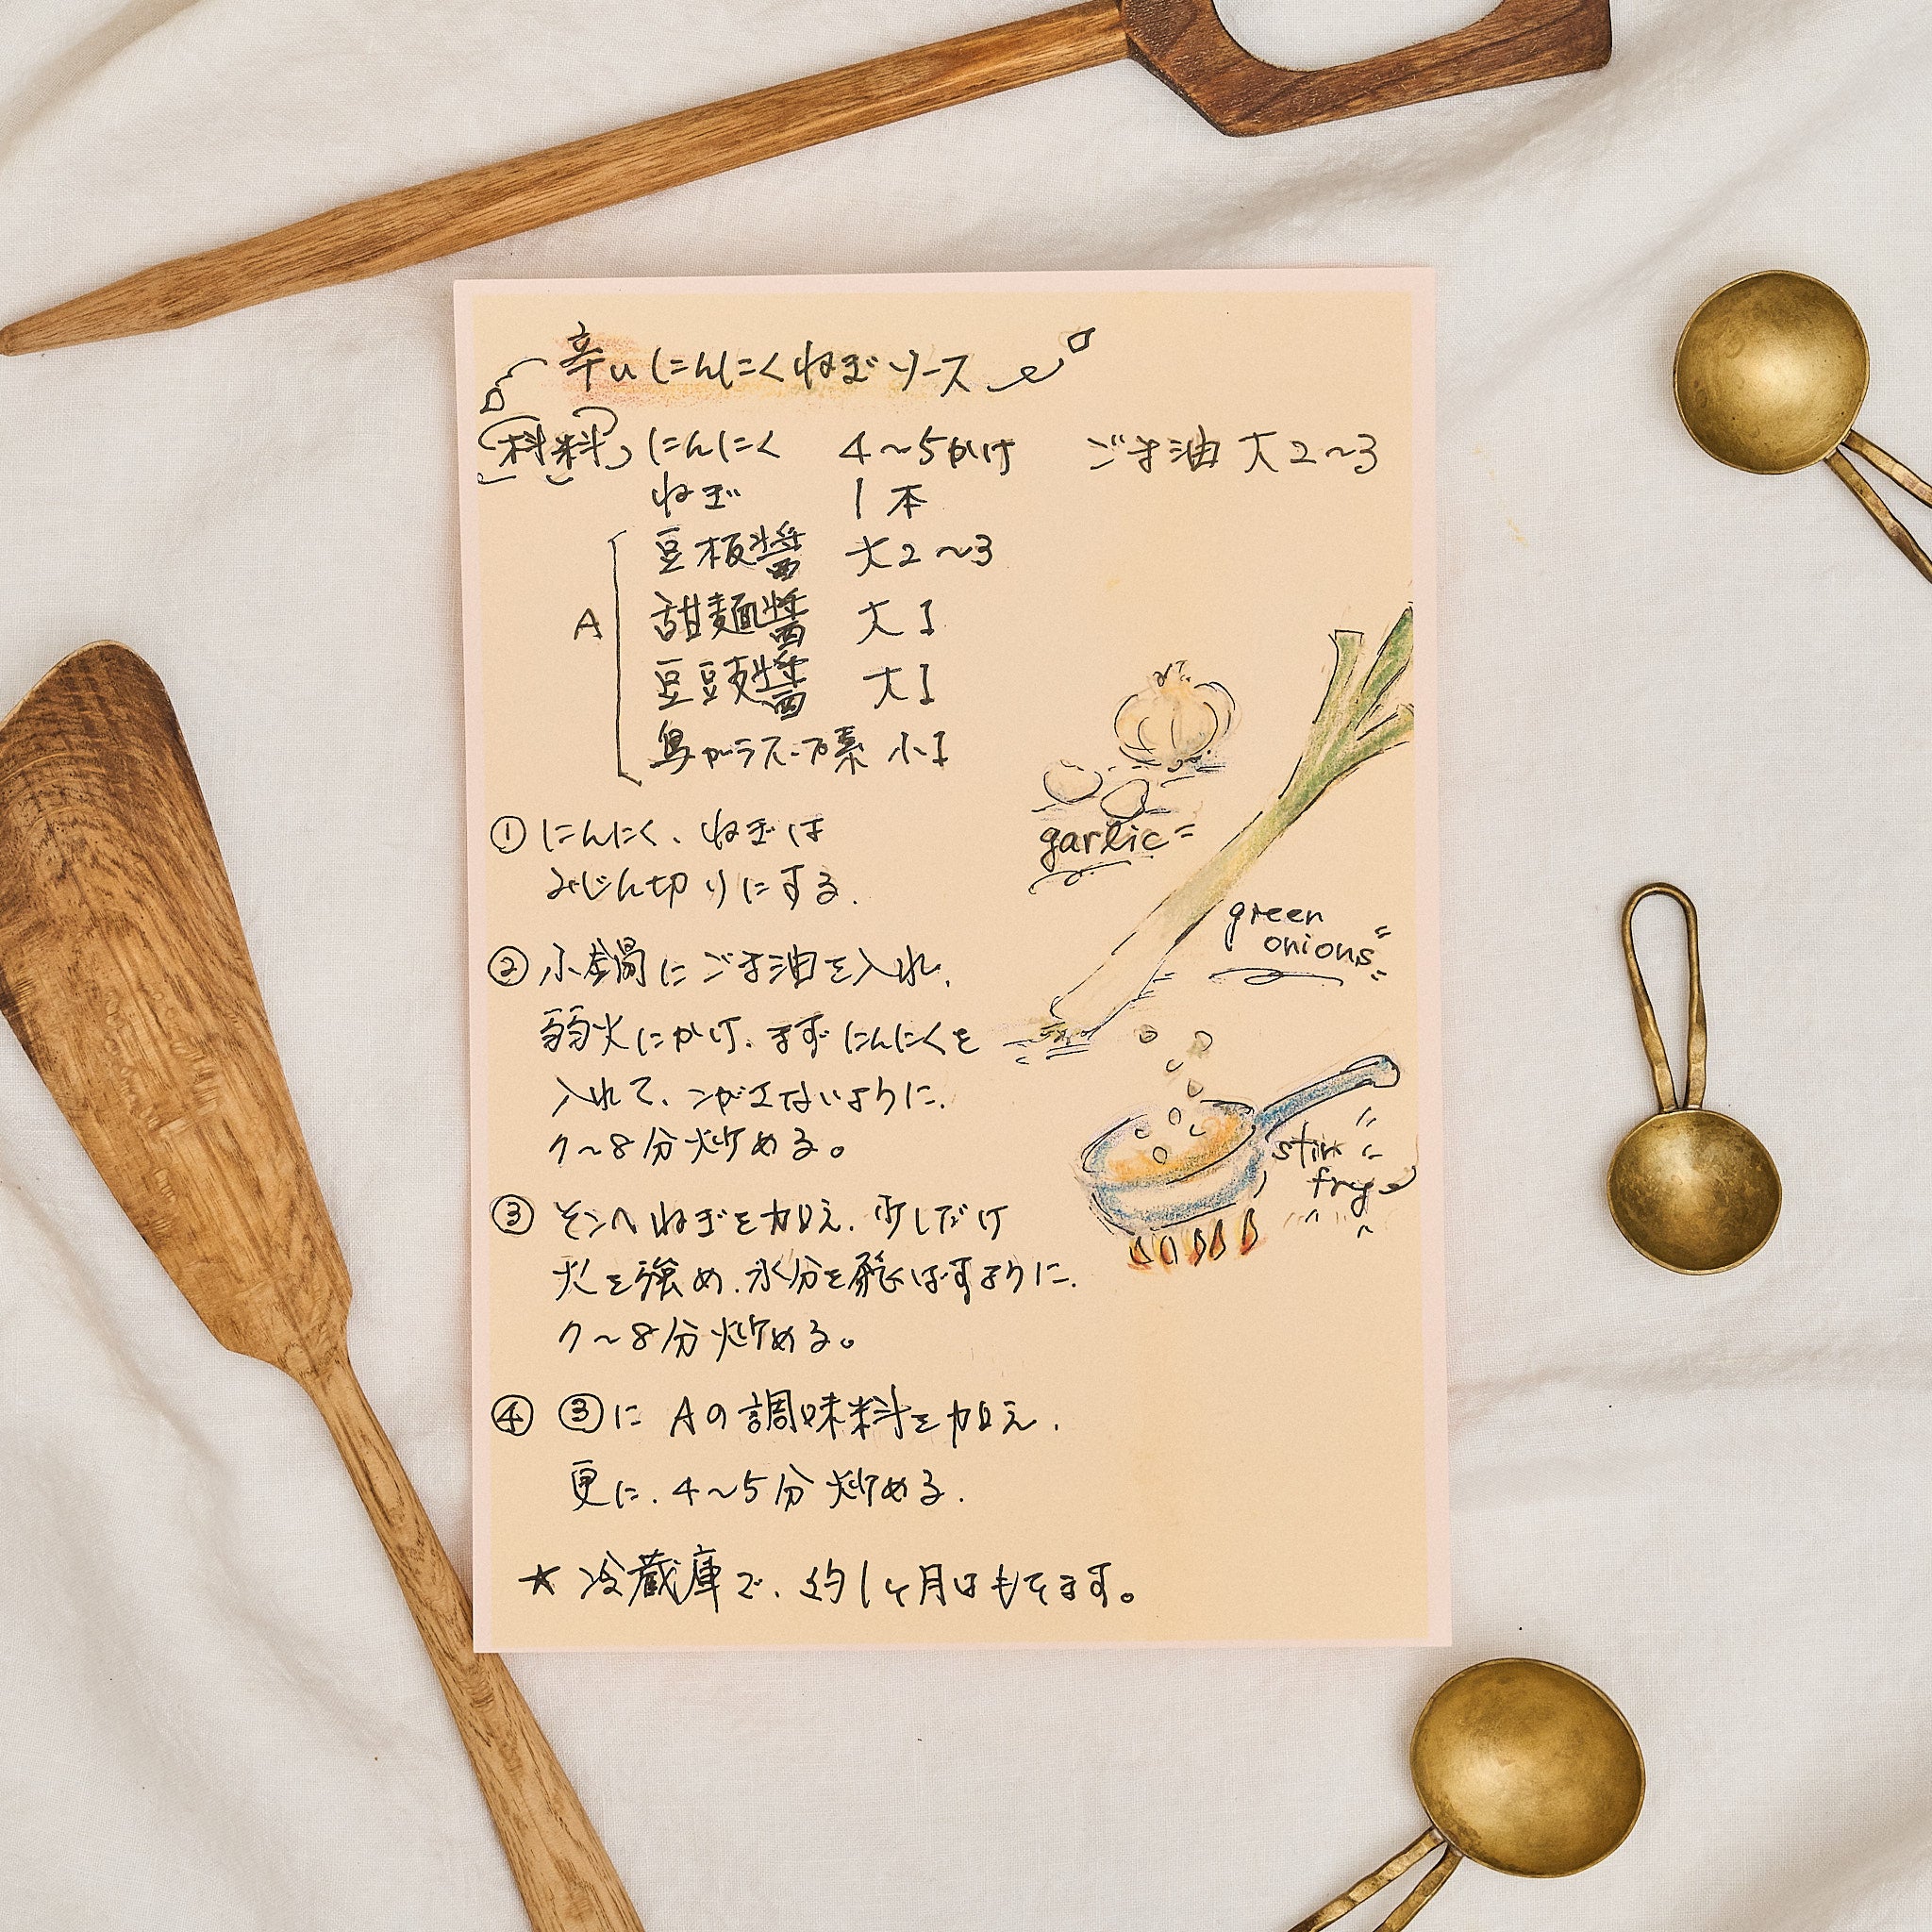 辛いにんにくねぎソース
材料 にんにく 4〜5かけ ごま油 大2〜3
ねぎ 1本
A
豆板醤 大2〜3
甜麺醤 大1
豆豉醤 大1
鳥がらスープの素 小1
① にんにく、ねぎは
みじん切りにする.
② 小鍋にごま油を入れ、
弱火にかけ、まずにんにくを
入れて、こがさないように、
7〜8分炒める。
③ そこへねぎを加え、少しだけ
火を強め、水分を飛ばすように、
7〜8分炒める。
④ ③に Aの調味料を加え、
更に、4〜5分炒める.
★ 冷蔵庫で、約1ヶ月はもてます。
garlic
green
onions
stir
frye